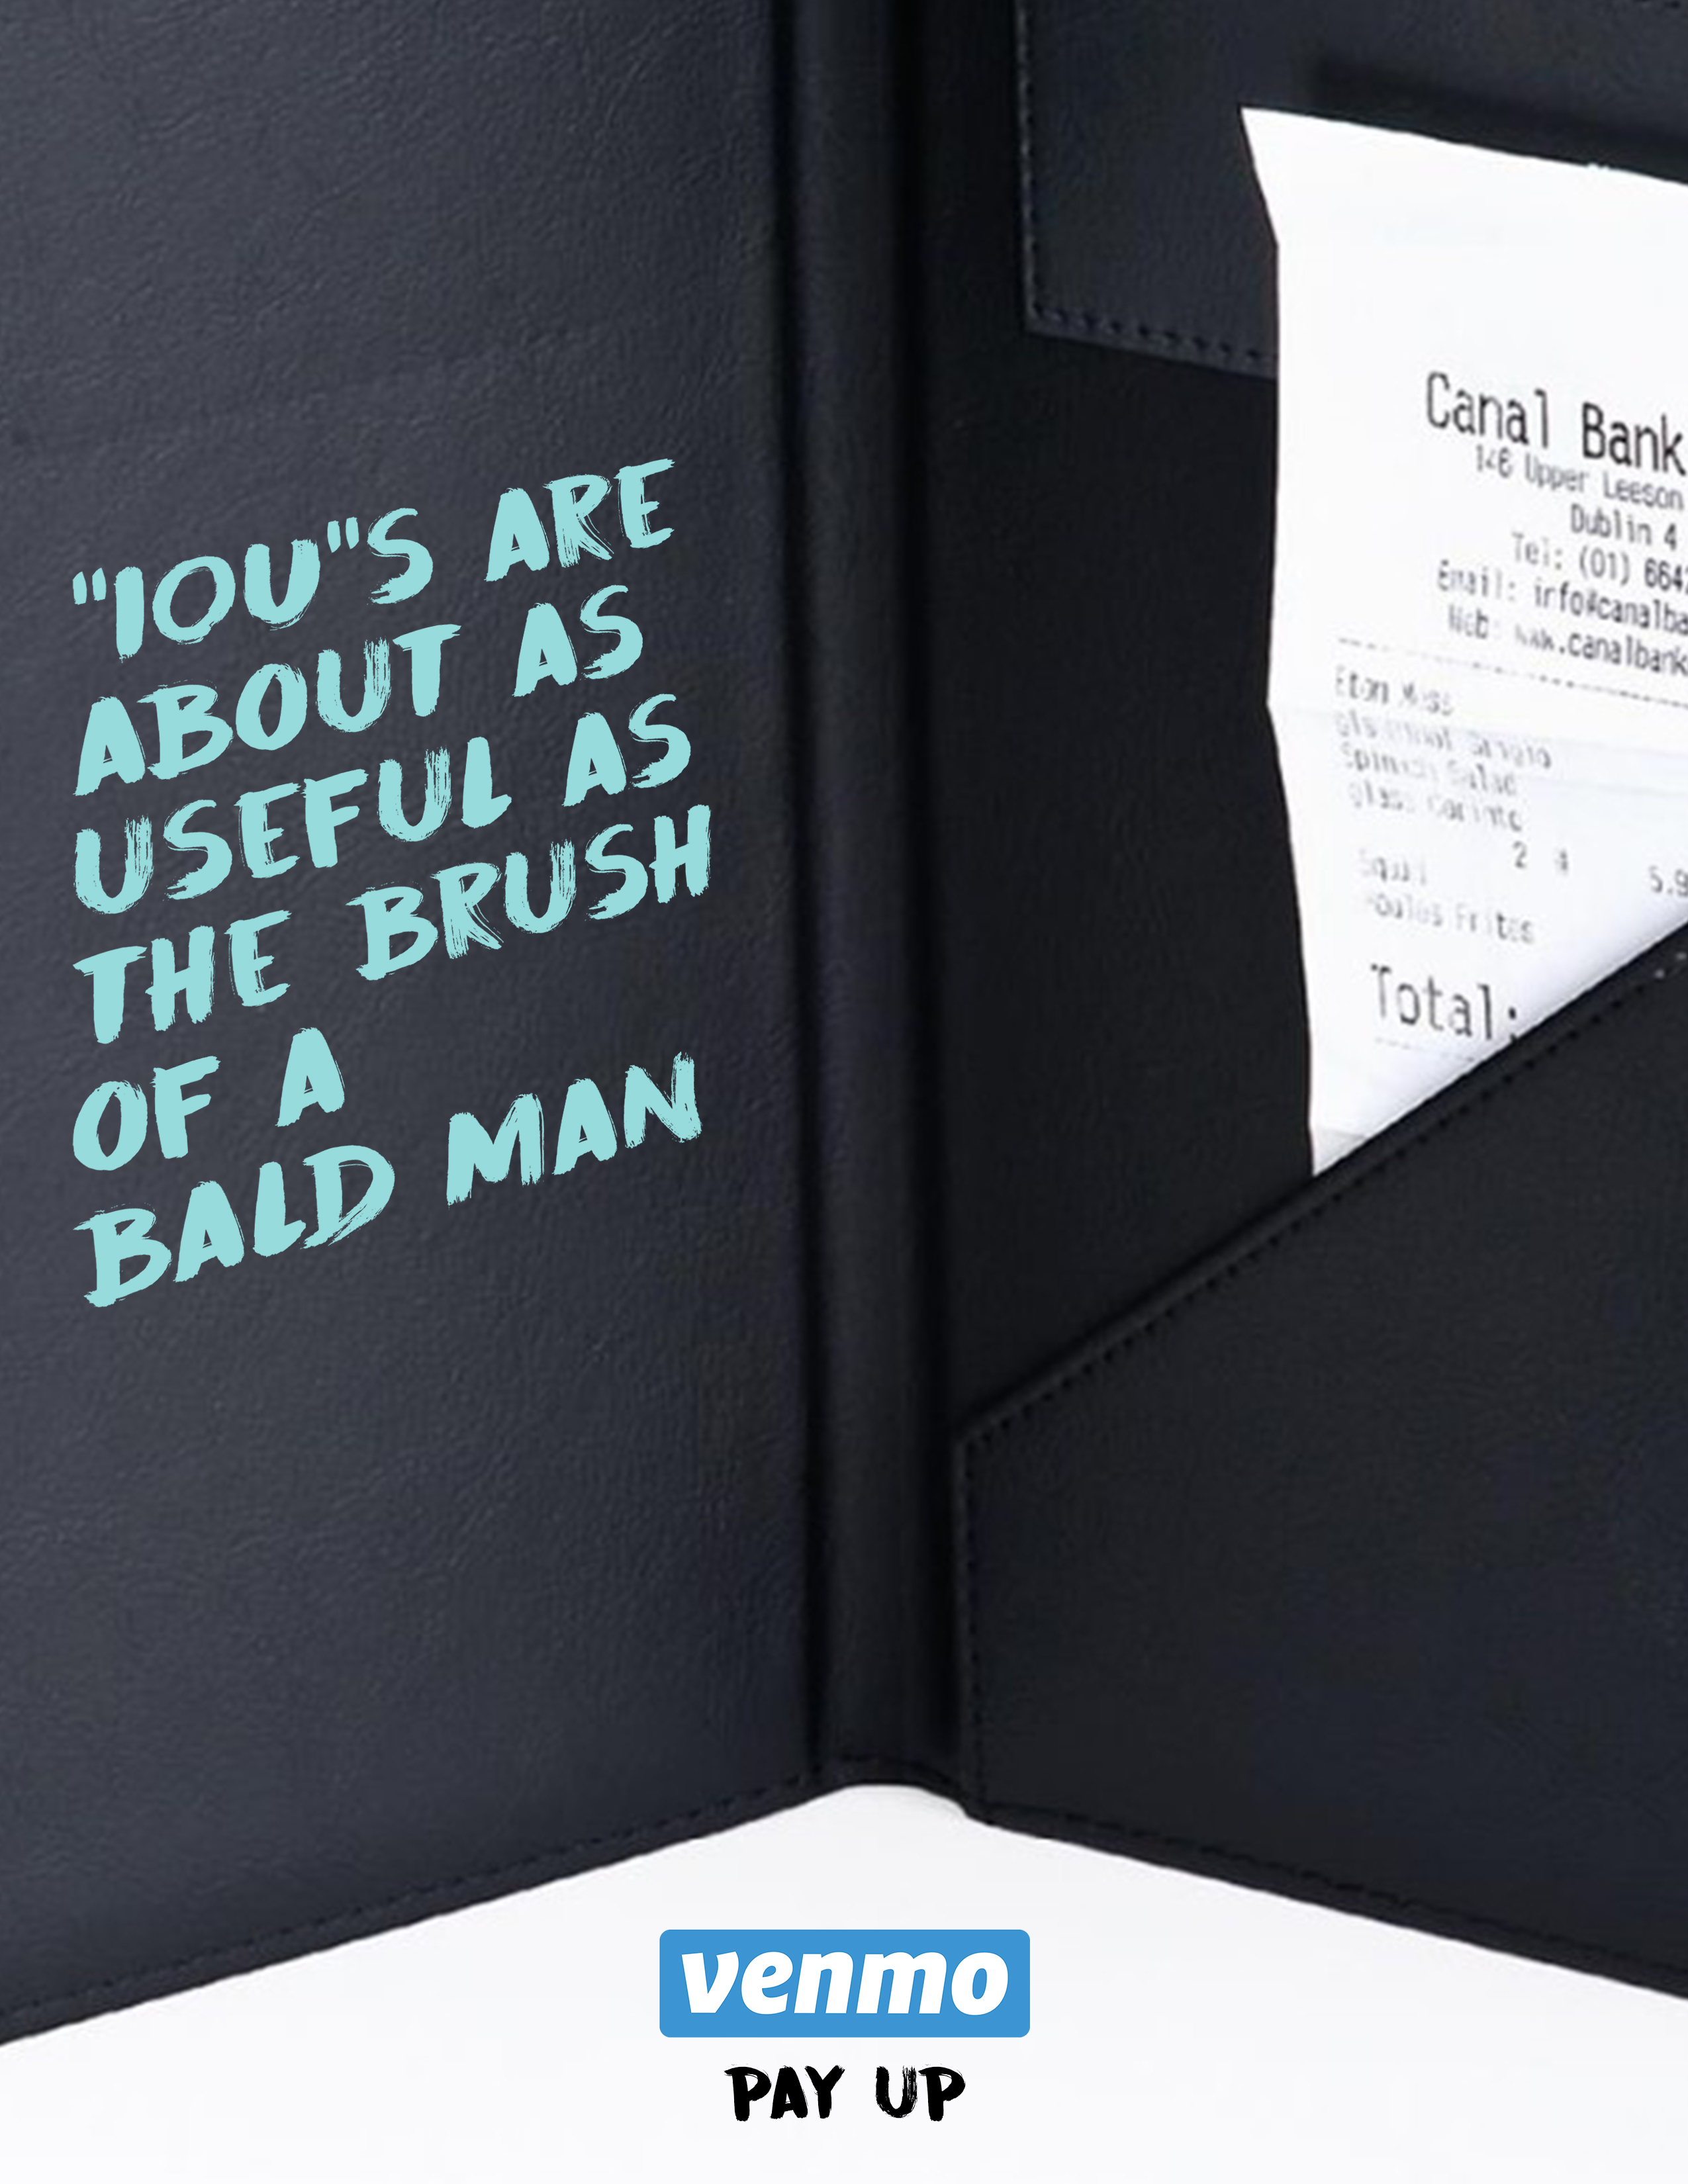 "IOU"S ARE
ABOUT AS
USEFUL AS
THE BRUSH
OF A
BALD MAN
Canal Bank
146 Upper Leeson
Dublin 4
Tel: (01) 664
Email: info@canalba
Web: www.canalbank
Eton Mess
Spinach Salad
2
5.9
Frites
Total:
venmo
PAY UP